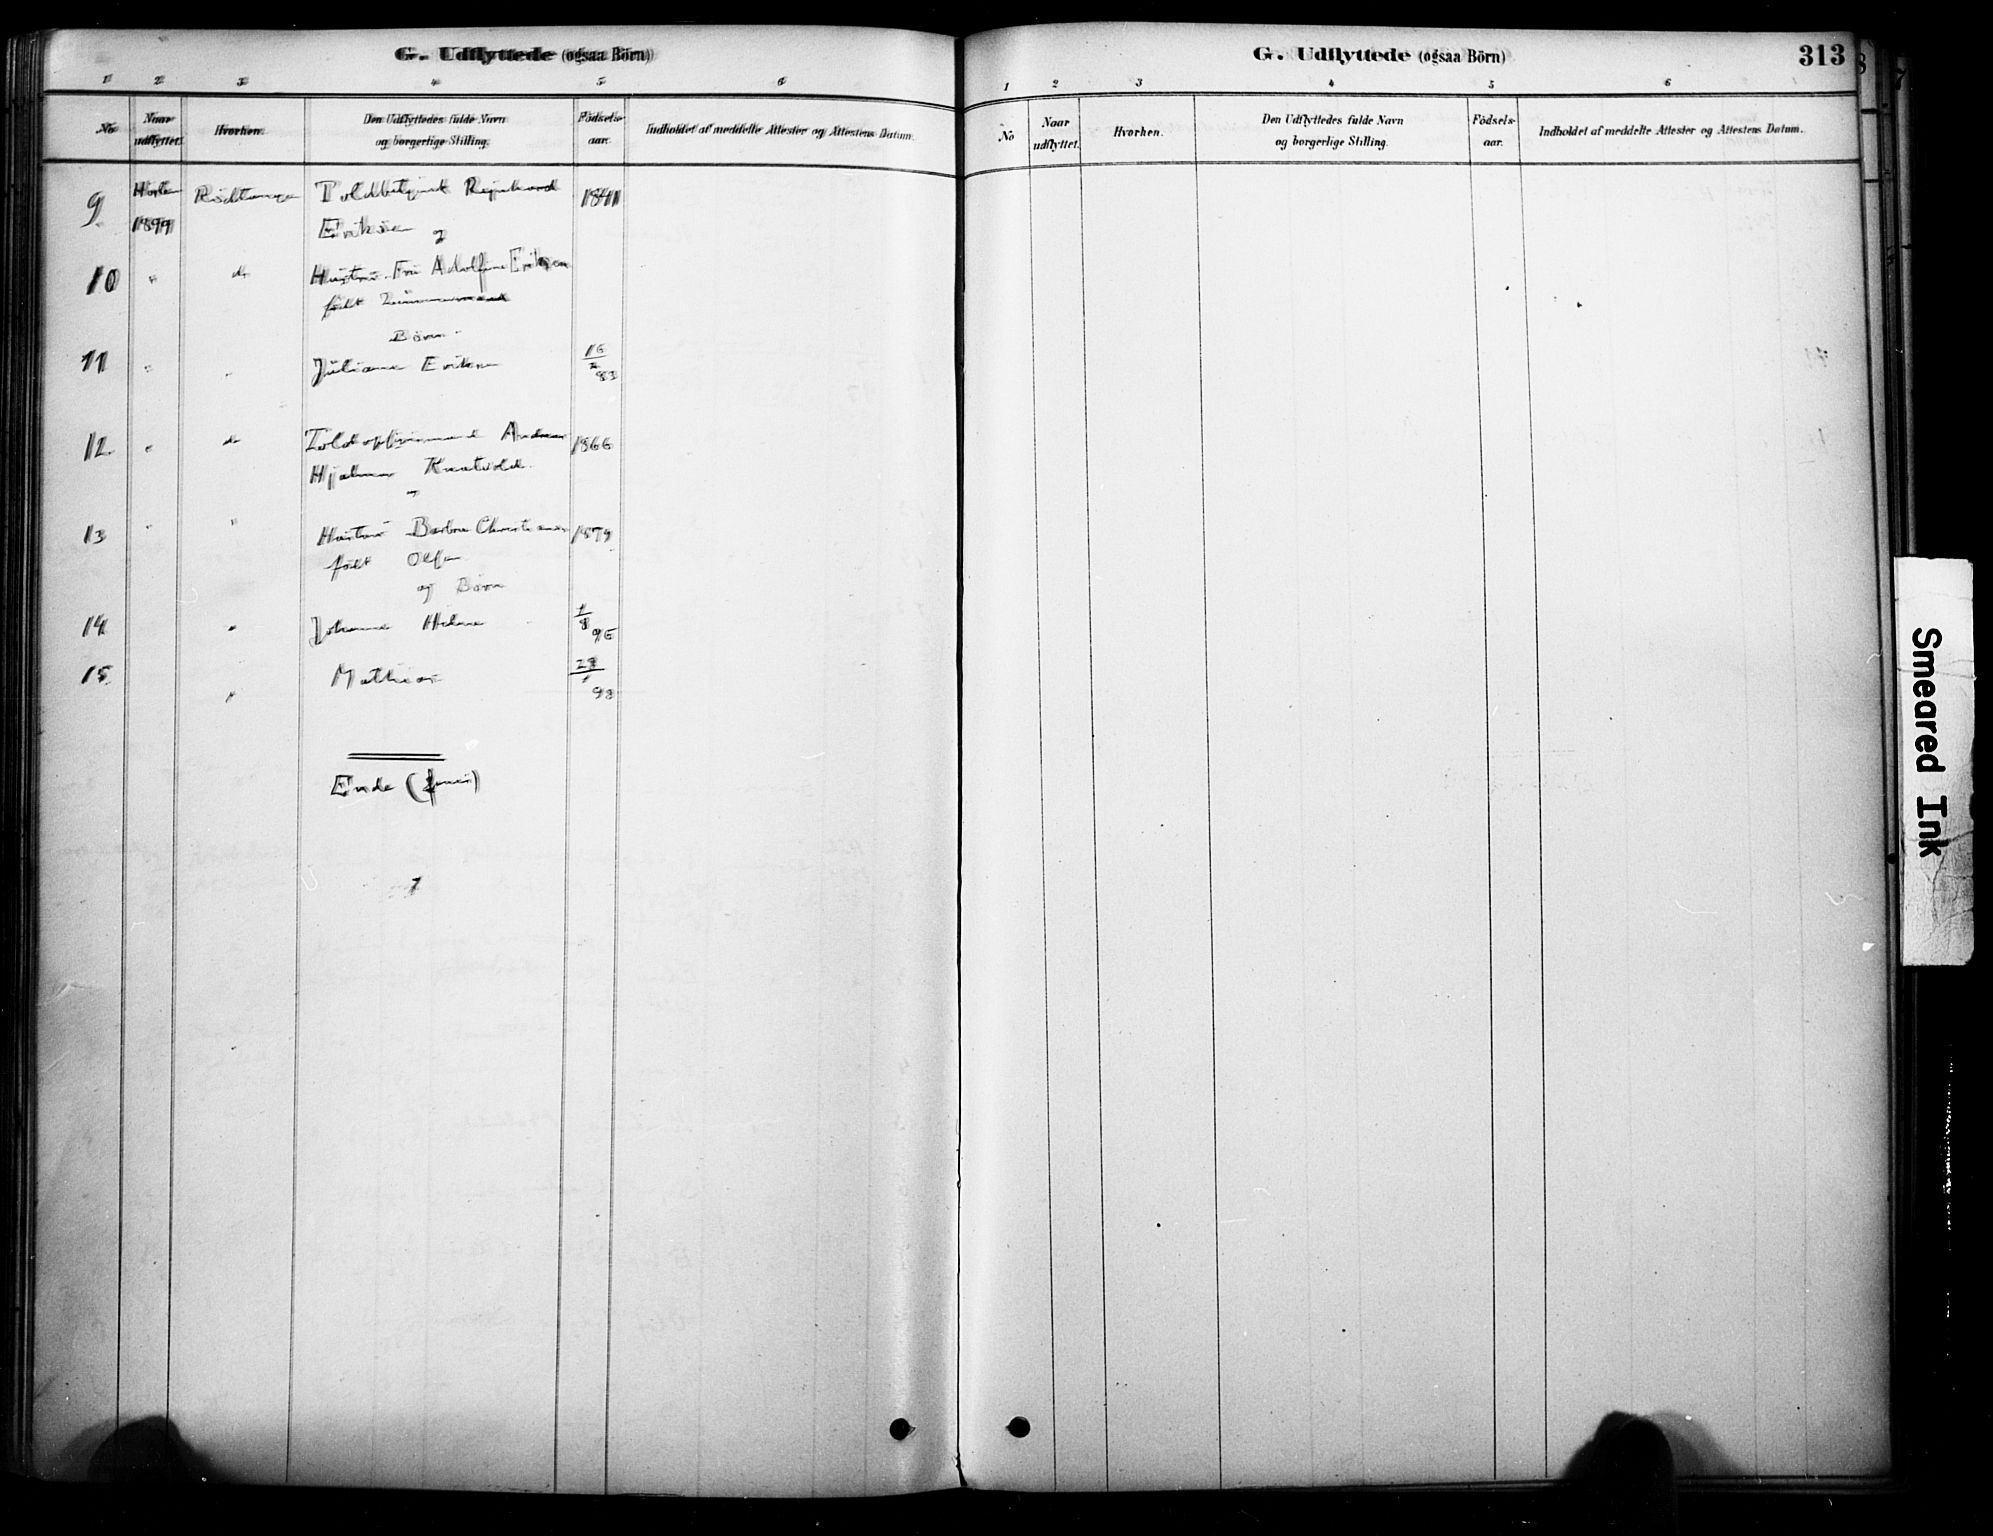 G. Udflyttede (ogsaa Börn)
1 2 3 4 5 6
No
Naar udflyttet.
Hvorhen.
Den Udflyttedes fulde Navn og borgerlige Stilling.
Födsels-aar.
Indholdet af meddelte Attester og Attestens Datum.
9 Høsten Rödtangen Toldbetjent 1841
1899 Eriksen og
10 " do Hustru Fru Adolfine Eriksen
født Zimmermand
Börn
11 " " Juliane Eriksen 16/ 83
12 " do Toldopsynsmand Andreas 1866
Hjalmar Knatvold
og
13 " " Hustru Barbra Christiansen 1879
født Olsen
og Børn
14 " Johanne Helene 1/8 96
15 " Mathias 28/1 98
Ende (finis)
G. Udflyttede (ogsaa Börn)
313
1 2 3 4 5 6
No
Naar udflyttet.
Hvorhen.
Den Udflyttedes fulde Navn og borgerlige Stilling.
Födsels-aar.
Indholdet af meddelte Attester og Attestens Datum.
Smeared Ink